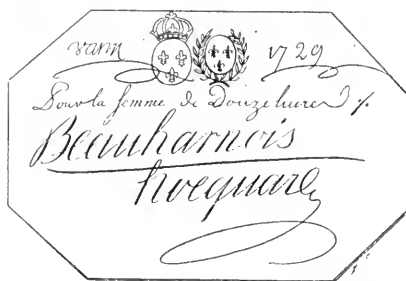 1729
Pour la femme de Douze livres
Beauharnois
hocquare